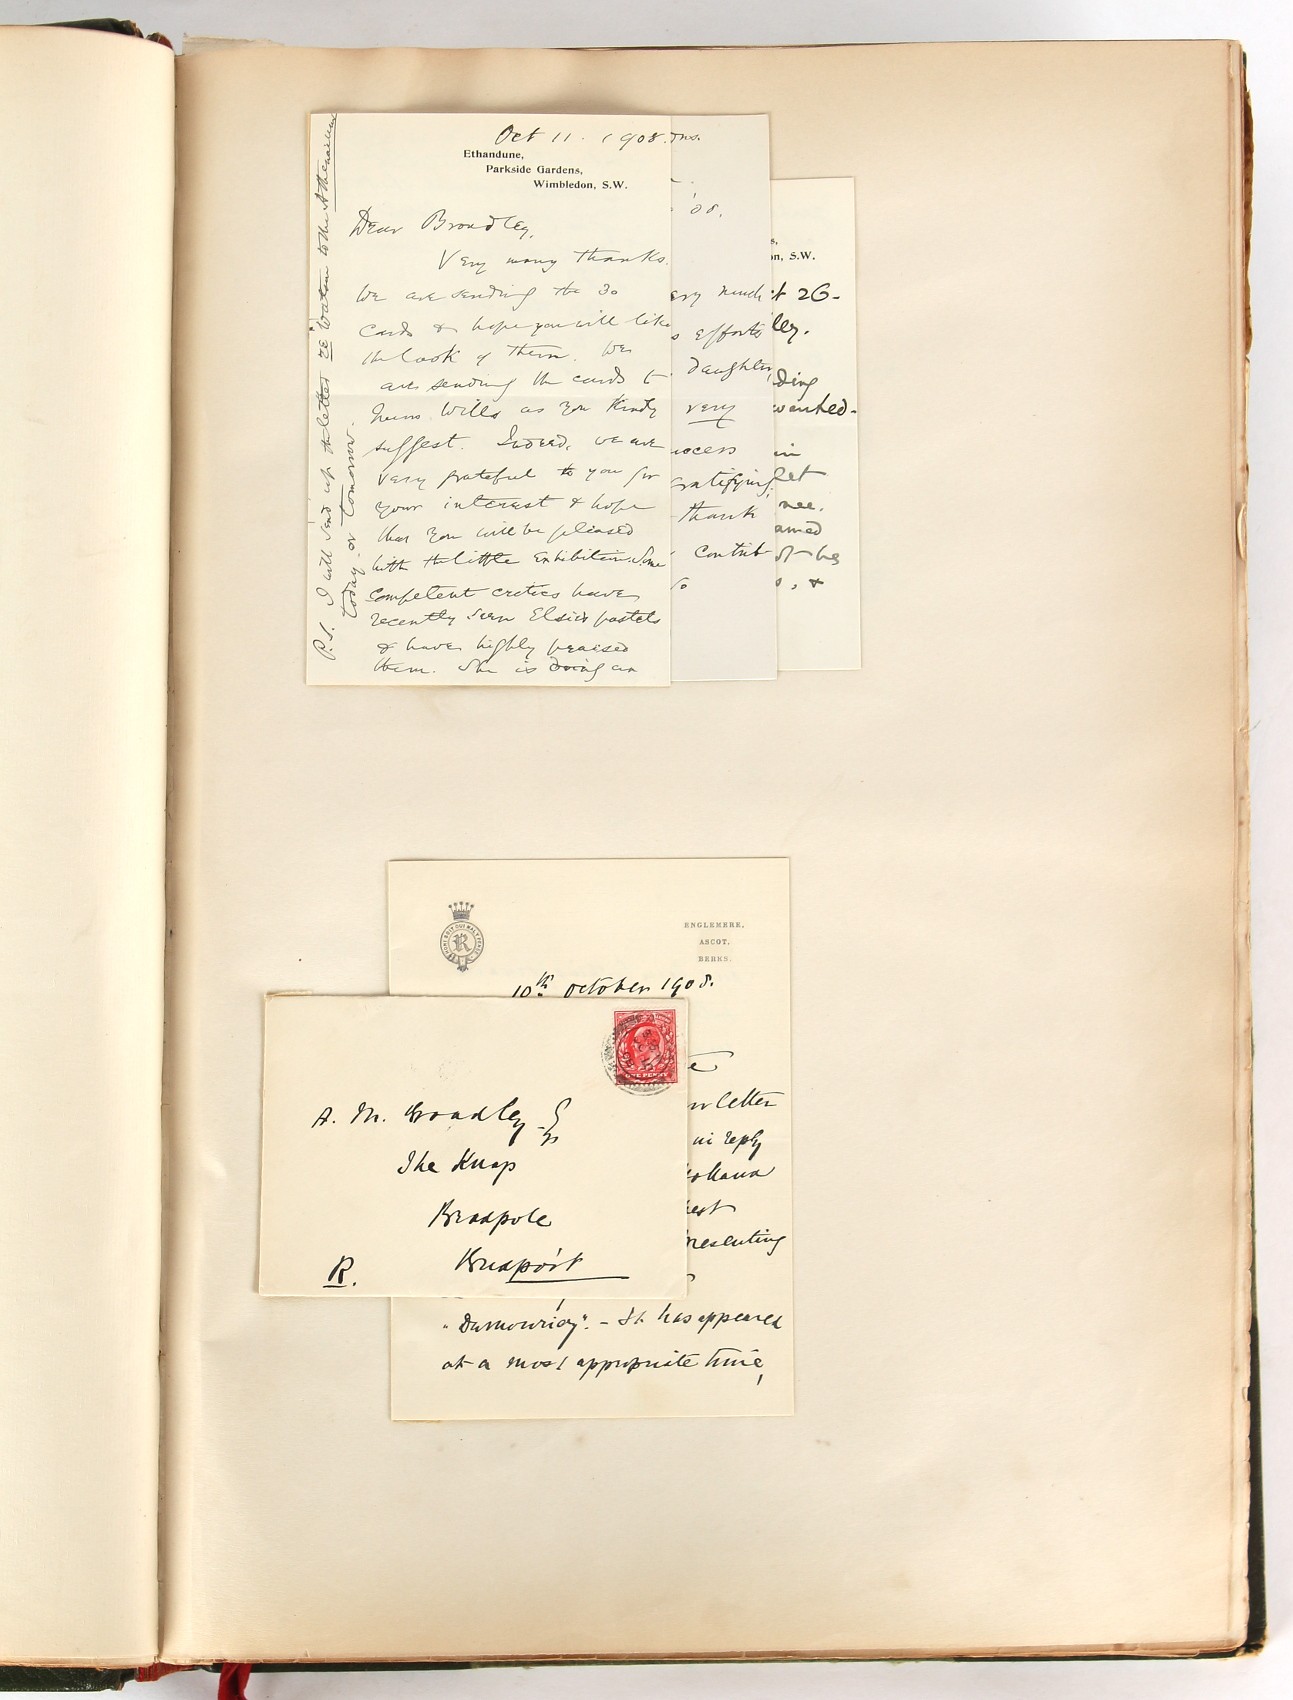 Oct 11. 1908.
Ethandune,
Parkside Gardens,
Wimbledon, S.W.
Dear Broadley,
Very many thanks.
We are sending the 30
cards & hope you will like
the look of them. We
are sending the cards to
Wills as you kindly
suggest. Indeed, we are
very grateful to you for
your interest & hope
that you will be pleased
with the little Exhibition. Some
competent critics have
recently seen Elsie's pastels
& have highly praised
them. She is doing an
P.S. I will send up the letter re Watson to the Athenaeum
today or tomorrow.
'08.
very much
efforts
daughter,
very
success
gratifying,
thank
contrib
so
n, S.W.
t 26-
ley.
ding
wanted-
in
let
nee.
amed
of he
s, &
R
ENGLEMERE,
ASCOT,
BERKS.
10th October 1908.
letter
in reply
Holland
presenting
"Dumouriez". - It has appeared
at a most appropriate time,
ONE PENNY
A. M. Broadley Esq
The Knap
Bradpole
Bridport
R.